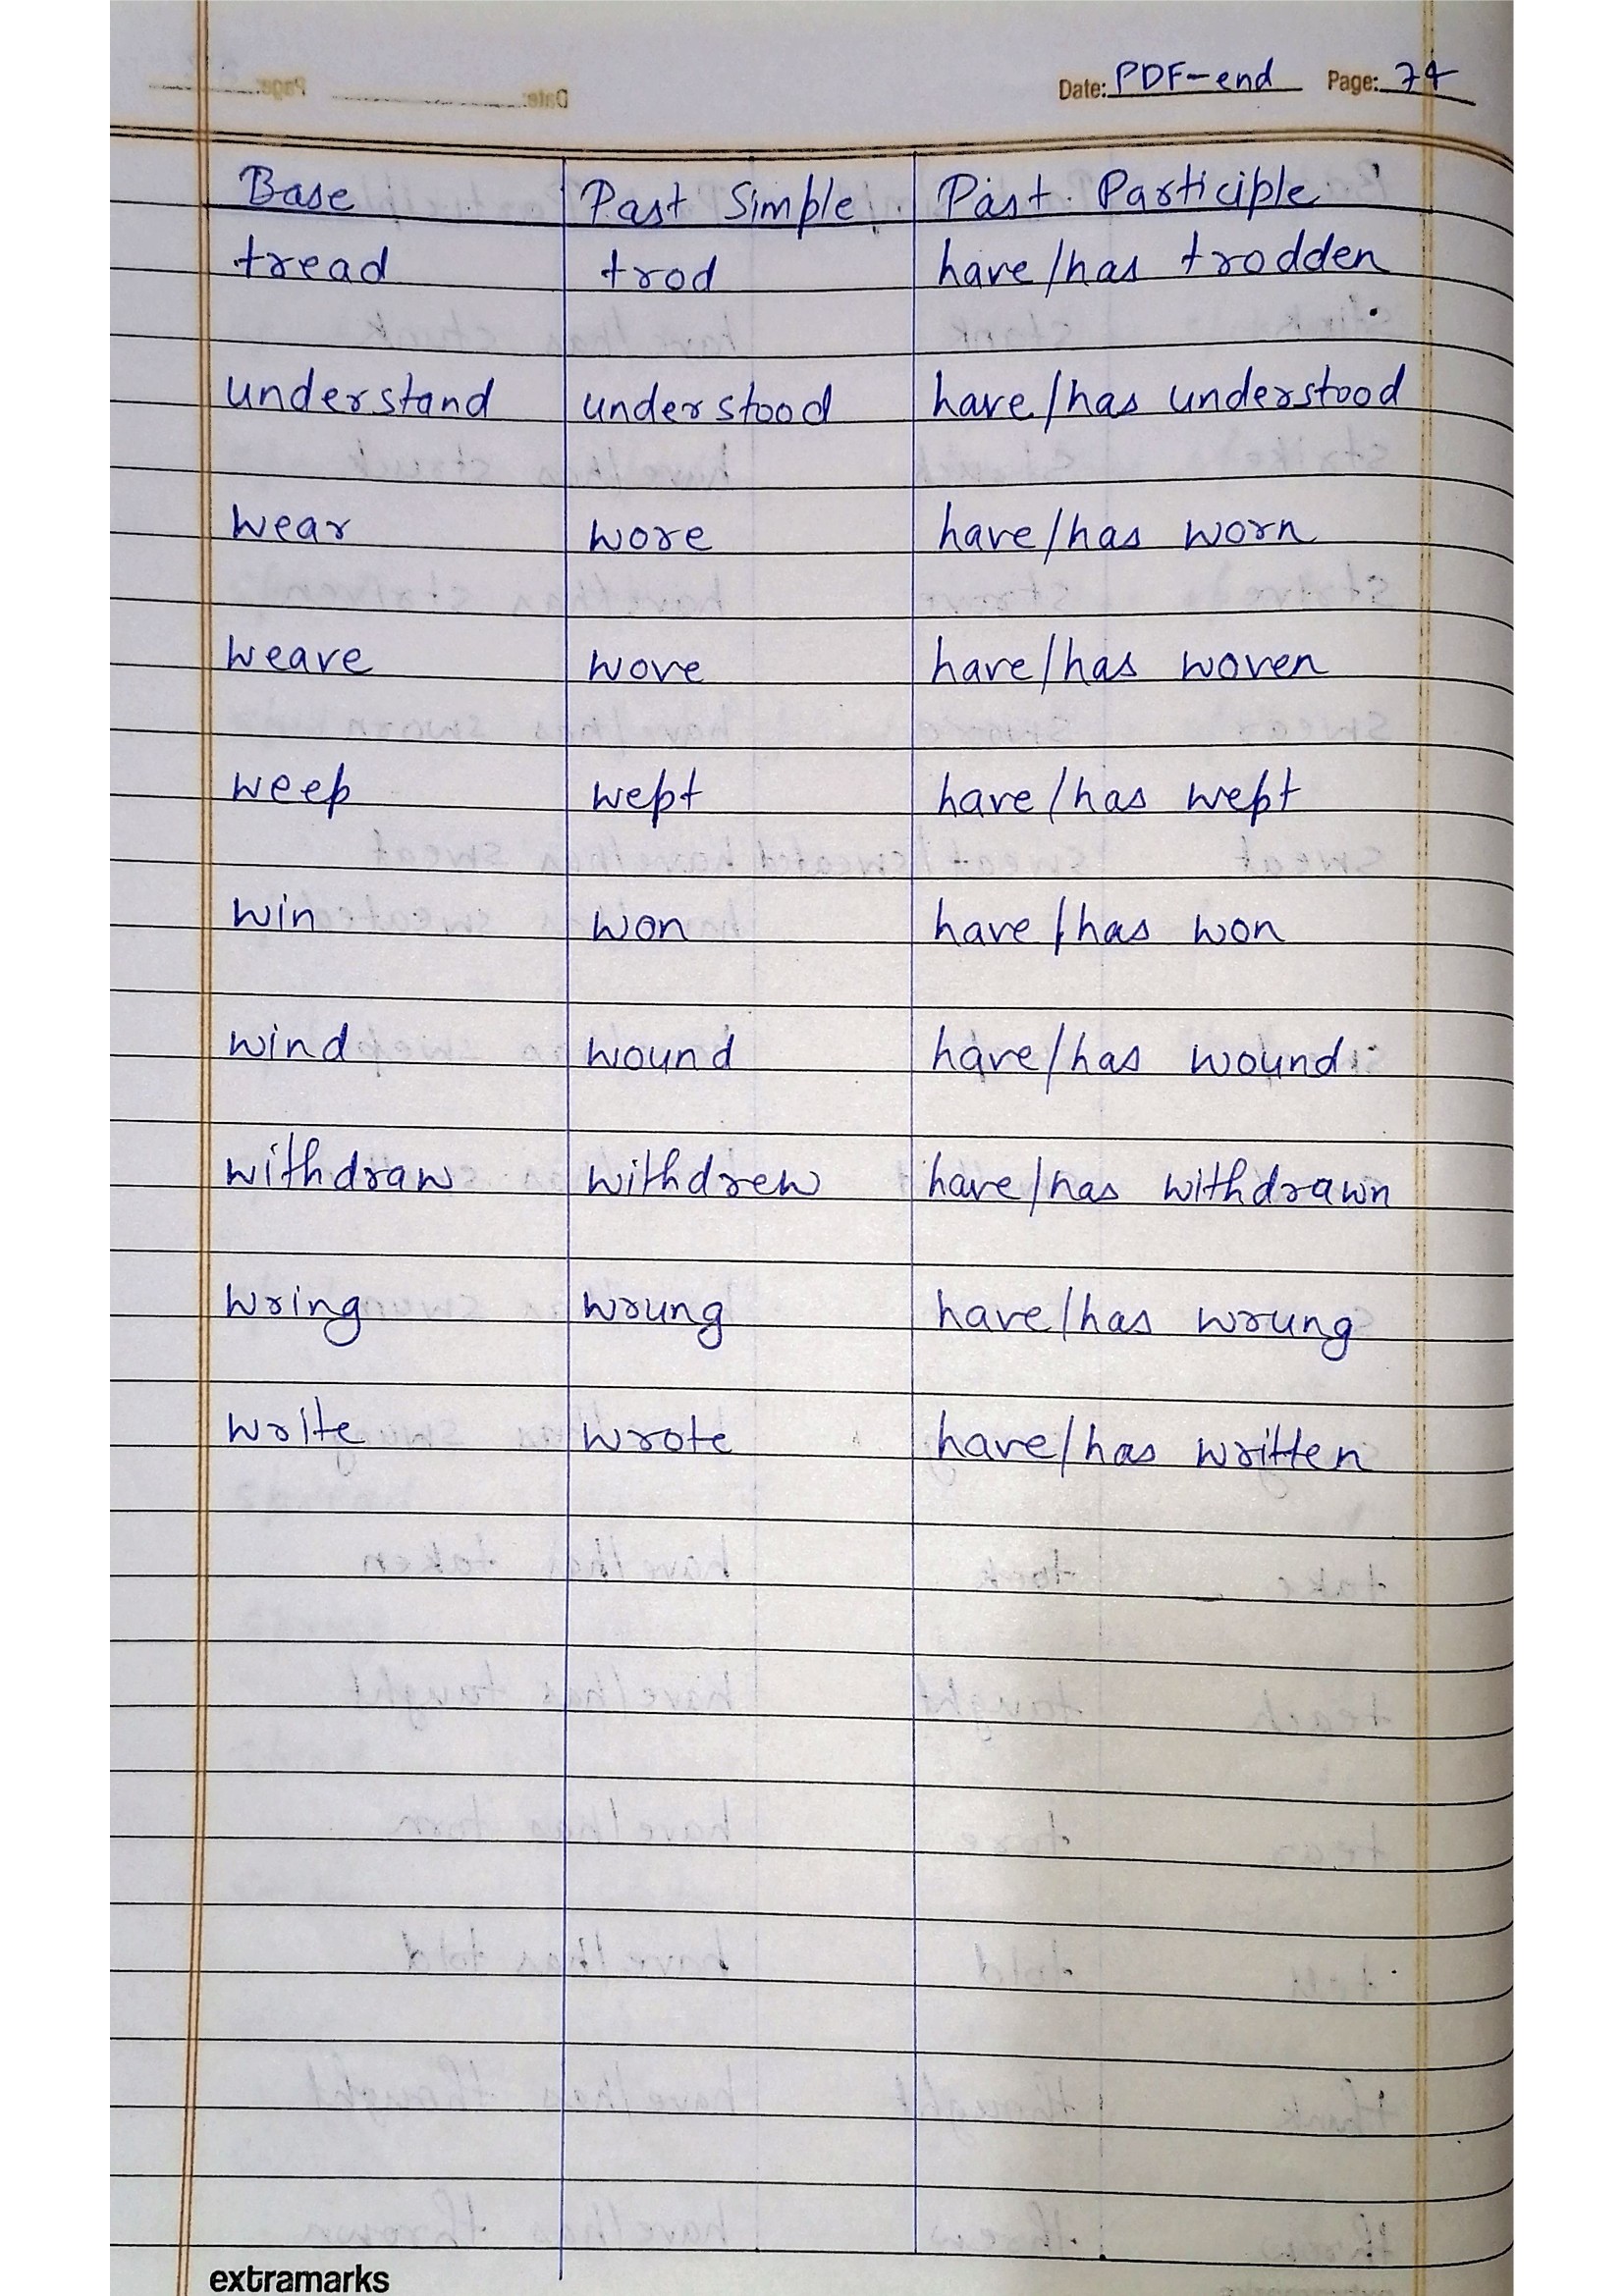 Date: PDF-end Page: 74
Base Past Simple Past Participle
tread trod have/has trodden
understand understood have/has understood
wear wore have/has worn
weave wove have/has woven
weep wept have/has wept
win won have/has won
wind wound have/has wound
withdraw withdrew have/has withdrawn
wring wrung have/has wrung
write wrote have/has written
extramarks